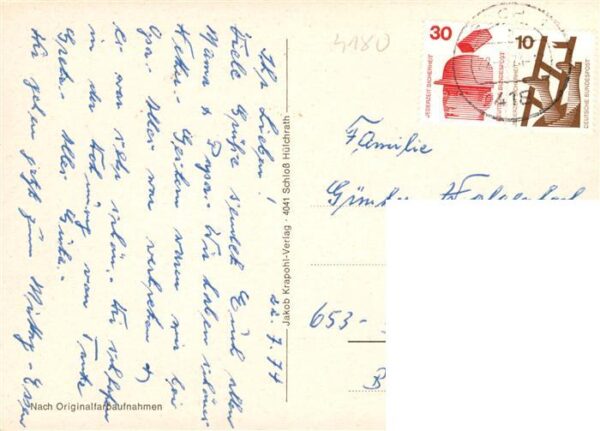 Ihr Lieben!
Viele Grüße sendet Euch allen
Mama & Papa. Wir haben schönes
Wetter. Gestern waren wir bei
Opa. Alles war
es war sehr schön. Wir schlafen
in der Wohnung von Tante
Grete. Alles Gute.
Wir gehen jetzt zum Mittag-Essen
22.7.74
Jakob Krapohl-Verlag · 4041 Schloß Hülchrath
Nach Originalfarbaufnahmen
4180
30
JEDERZEIT SICHERHEIT
DEUTSCHE BUNDESPOST
10
DEUTSCHE BUNDESPOST
418
Familie
Günter
653-
B